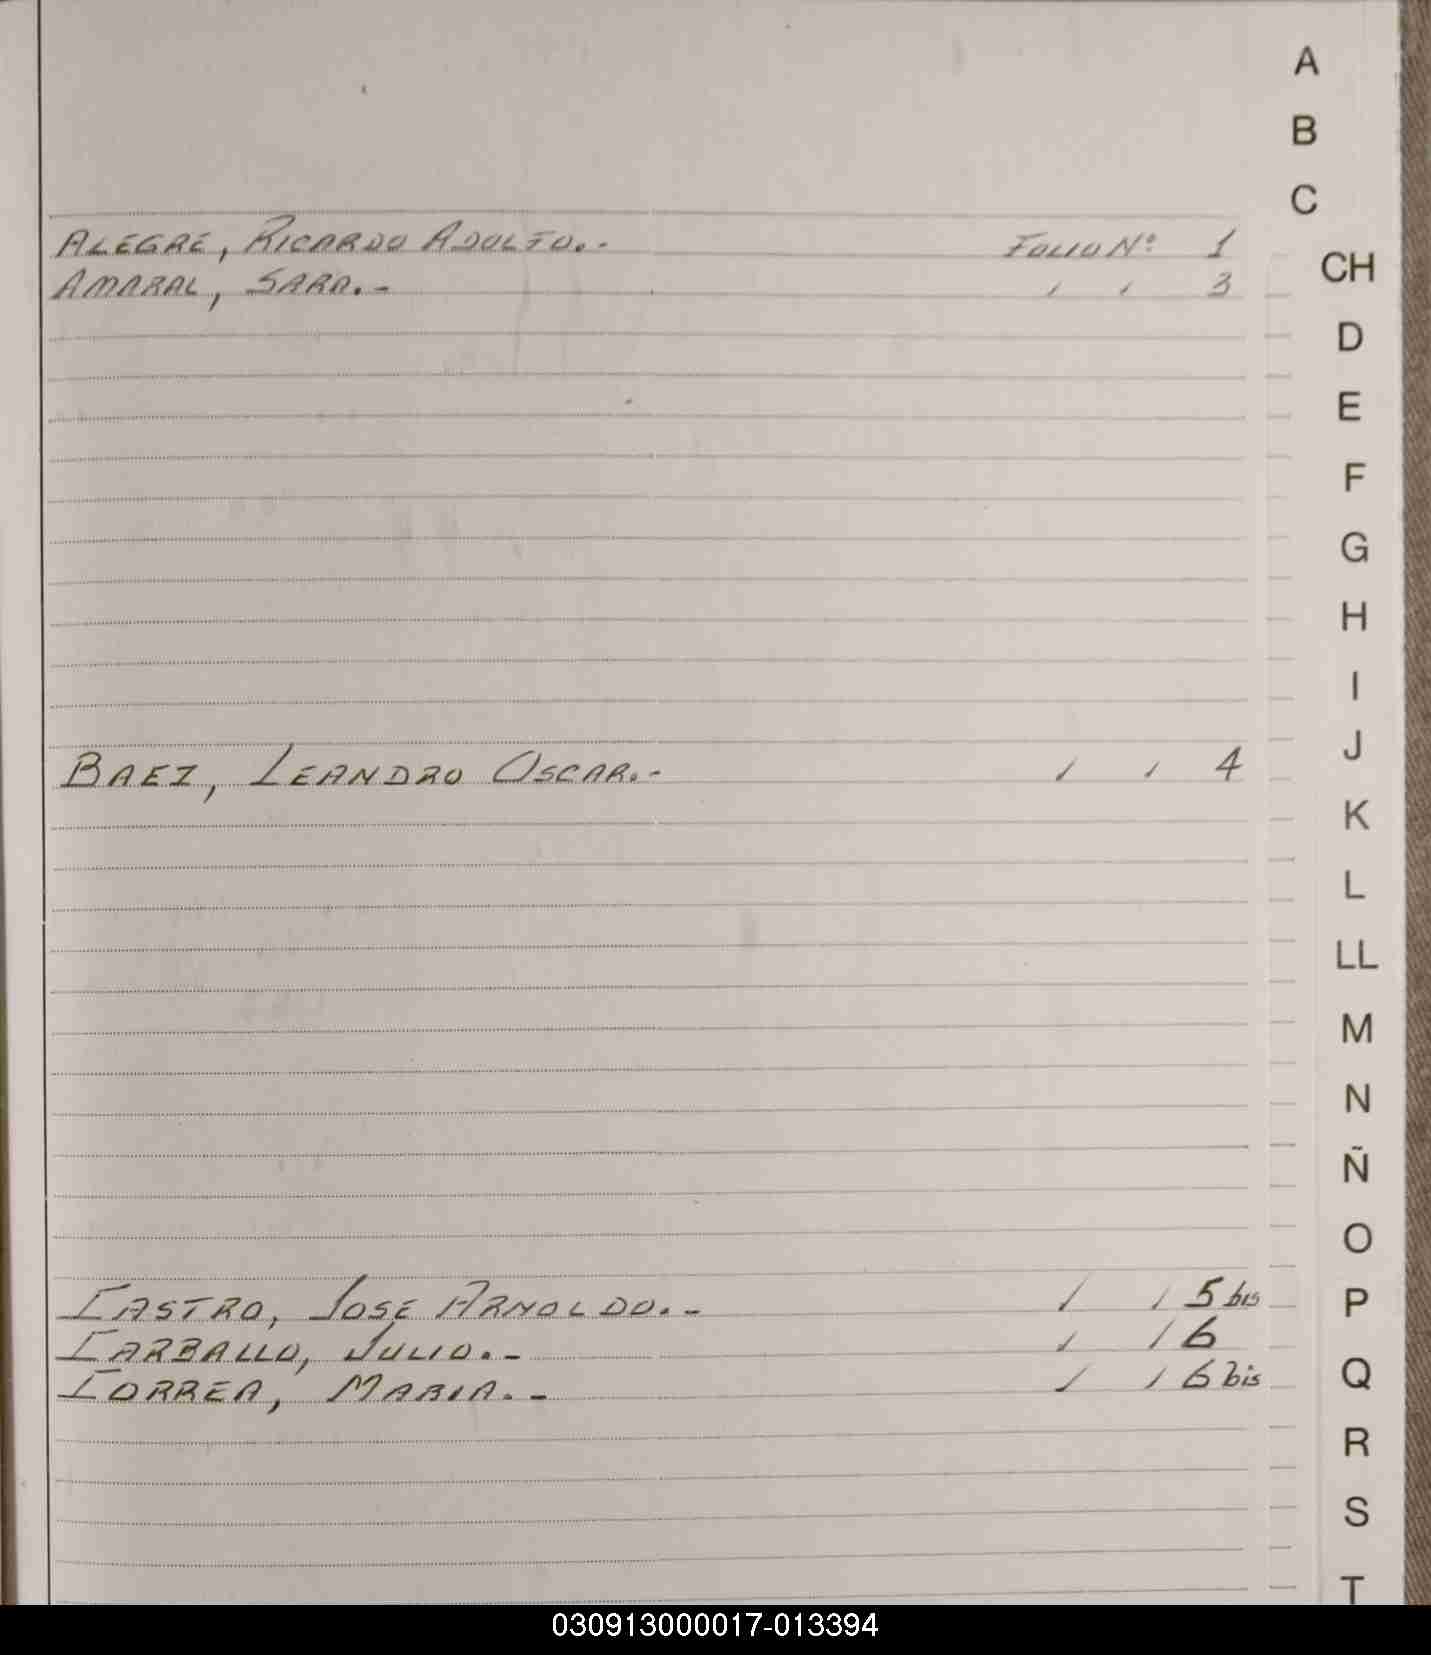 A
B
C
ALEGRE, RICARDO ADOLFO.- FOLIO Nº 1
CH
AMARAL, SARA.- " " 3
D
E
F
G
H
I
J
BAEZ, LEANDRO OSCAR.- " " 4
K
L
LL
M
N
Ñ
O
CASTRO, JOSE ARNOLDO.- " " 5 bis
P
CARBALLO, JULIO.- " " 6
CORREA, MARIA.- " " 6 bis
Q
R
S
T
030913000017-013394